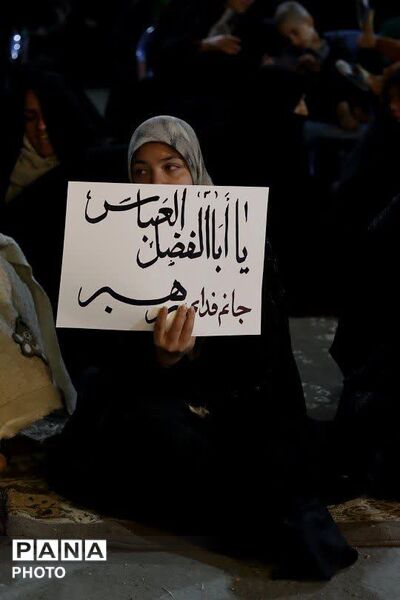 یا أباالفضل العباس
جانم فدای رهبر
PANA
PHOTO